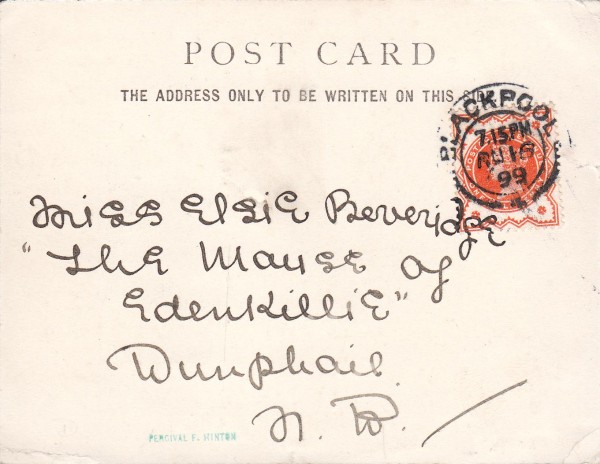 POST CARD
THE ADDRESS ONLY TO BE WRITTEN ON THIS SIDE
BLACKPOOL
7.15PM
99
Miss Elsie Beveridge
"The Manse of
Edenkillie"
Dunphail
N. B.
PERCIVAL F. HINTON